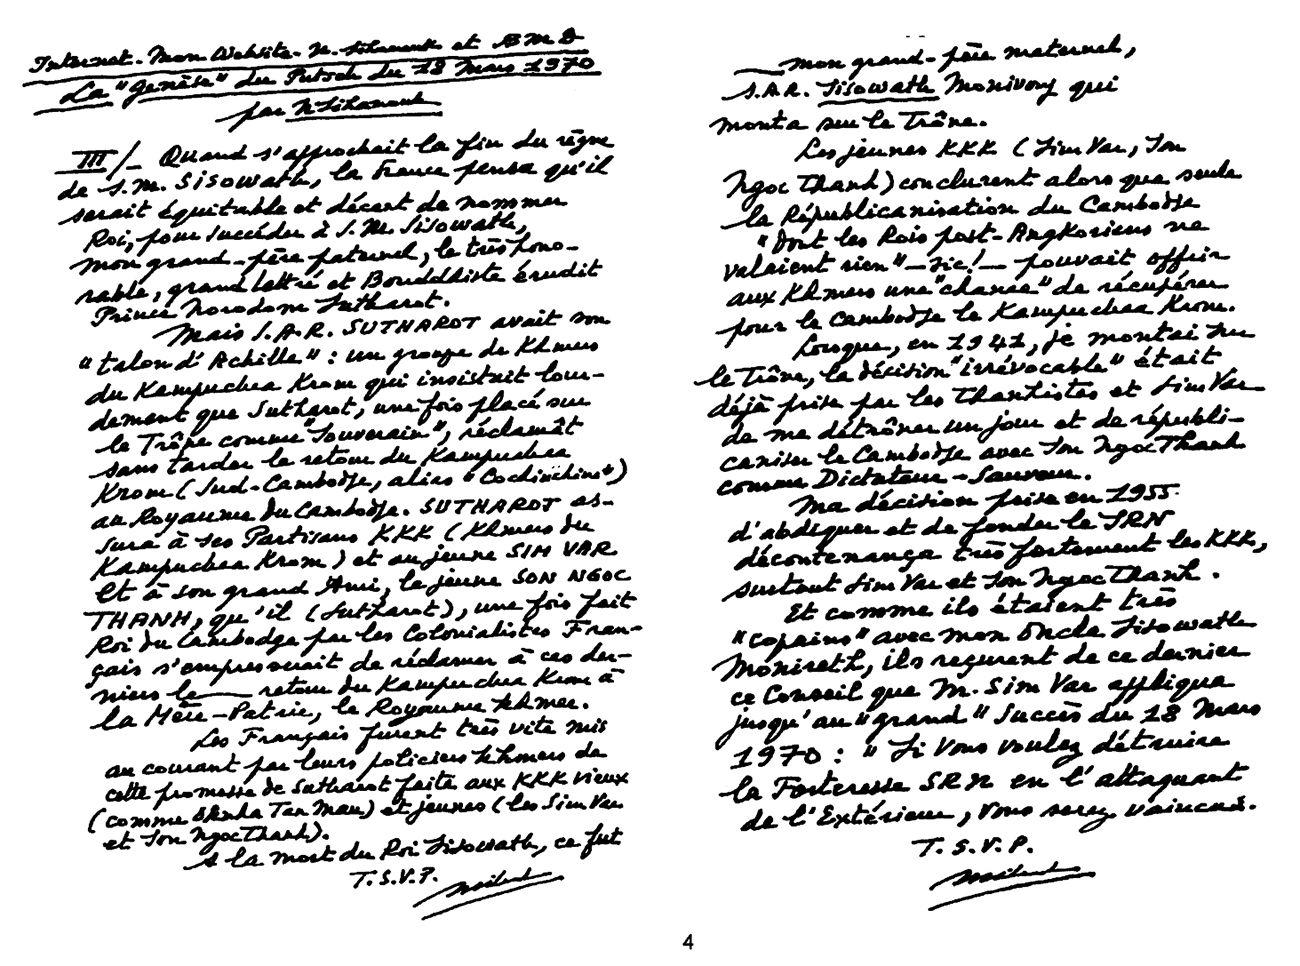 Internet. Mon Website. N. Sihanouk et BMD
La "Genèse" du Putsch du 18 Mars 1970
par N. Sihanouk
III/- Quand s'approchait la fin du règne
de S.M. SISOWATH, la France pensa qu'il
serait équitable et décent de nommer
Roi, pour succéder à S.M. Sisowath,
mon grand-père paternel, le très hono-
rable, grand lettré et Bouddhiste érudit
Prince Norodom Sutharot.
Mais S.A.R. SUTHAROT avait son
"talon d'Achille" : un groupe de Khmers
du Kampuchea Krom qui insistait lour-
dement que Sutharot, une fois placé sur
le Trône comme "Souverain", réclamât
sans tarder le retour du Kampuchea
Krom (Sud-Cambodge, alias "Cochinchine")
au Royaume du Cambodge. SUTHAROT as-
sura à ses Partisans KKK (Khmers du
Kampuchea Krom) et au jeune SIM VAR
et à son grand Ami, le jeune SON NGOC
THANH, qu'il (Sutharot), une fois fait
Roi du Cambodge par les Colonialistes Fran-
çais s'empresserait de réclamer à ces der-
niers le retour du Kampuchea Krom à
la Mère-Patrie, le Royaume khmer.
Les Français furent très vite mis
au courant par leurs policiers khmers de
cette promesse de Sutharot faite aux KKK vieux
(comme Oknha Tan Mau) et jeunes (les Sim Var
et Son Ngoc Thanh).
A la mort du Roi Sisowath, ce fut
T.S.V.P.
mon grand-père maternel,
S.A.R. Sisowath Monivong qui
monta sur le Trône.
Les jeunes KKK (Sim Var, Son
Ngoc Thanh) conclurent alors que seule
la Républicanisation du Cambodge
"dont les Rois post-Angkoriens ne
valaient rien" – sic! – pouvait offrir
aux Khmers une "chance" de récupérer
pour le Cambodge le Kampuchea Krom.
Lorsque, en 1941, je montai sur
le Trône, la décision "irrévocable" était
déjà prise par les Thanhistes et Sim Var
de me détrôner un jour et de républi-
caniser le Cambodge avec Son Ngoc Thanh
comme Dictateur-Sauveur.
Ma décision prise en 1955
d'abdiquer et de fonder le SRN
décontenança très fortement les KKK,
surtout Sim Var et Son Ngoc Thanh.
Et comme ils étaient très
"copains" avec mon Oncle Sisowath
Monireth, ils reçurent de ce dernier
ce Conseil que M. Sim Var appliqua
jusqu'au "grand" Succès du 18 Mars
1970 : "Si vous voulez détruire
la Forteresse SRN en l'attaquant
de l'Extérieur, vous serez vaincus.
T.S.V.P.
4